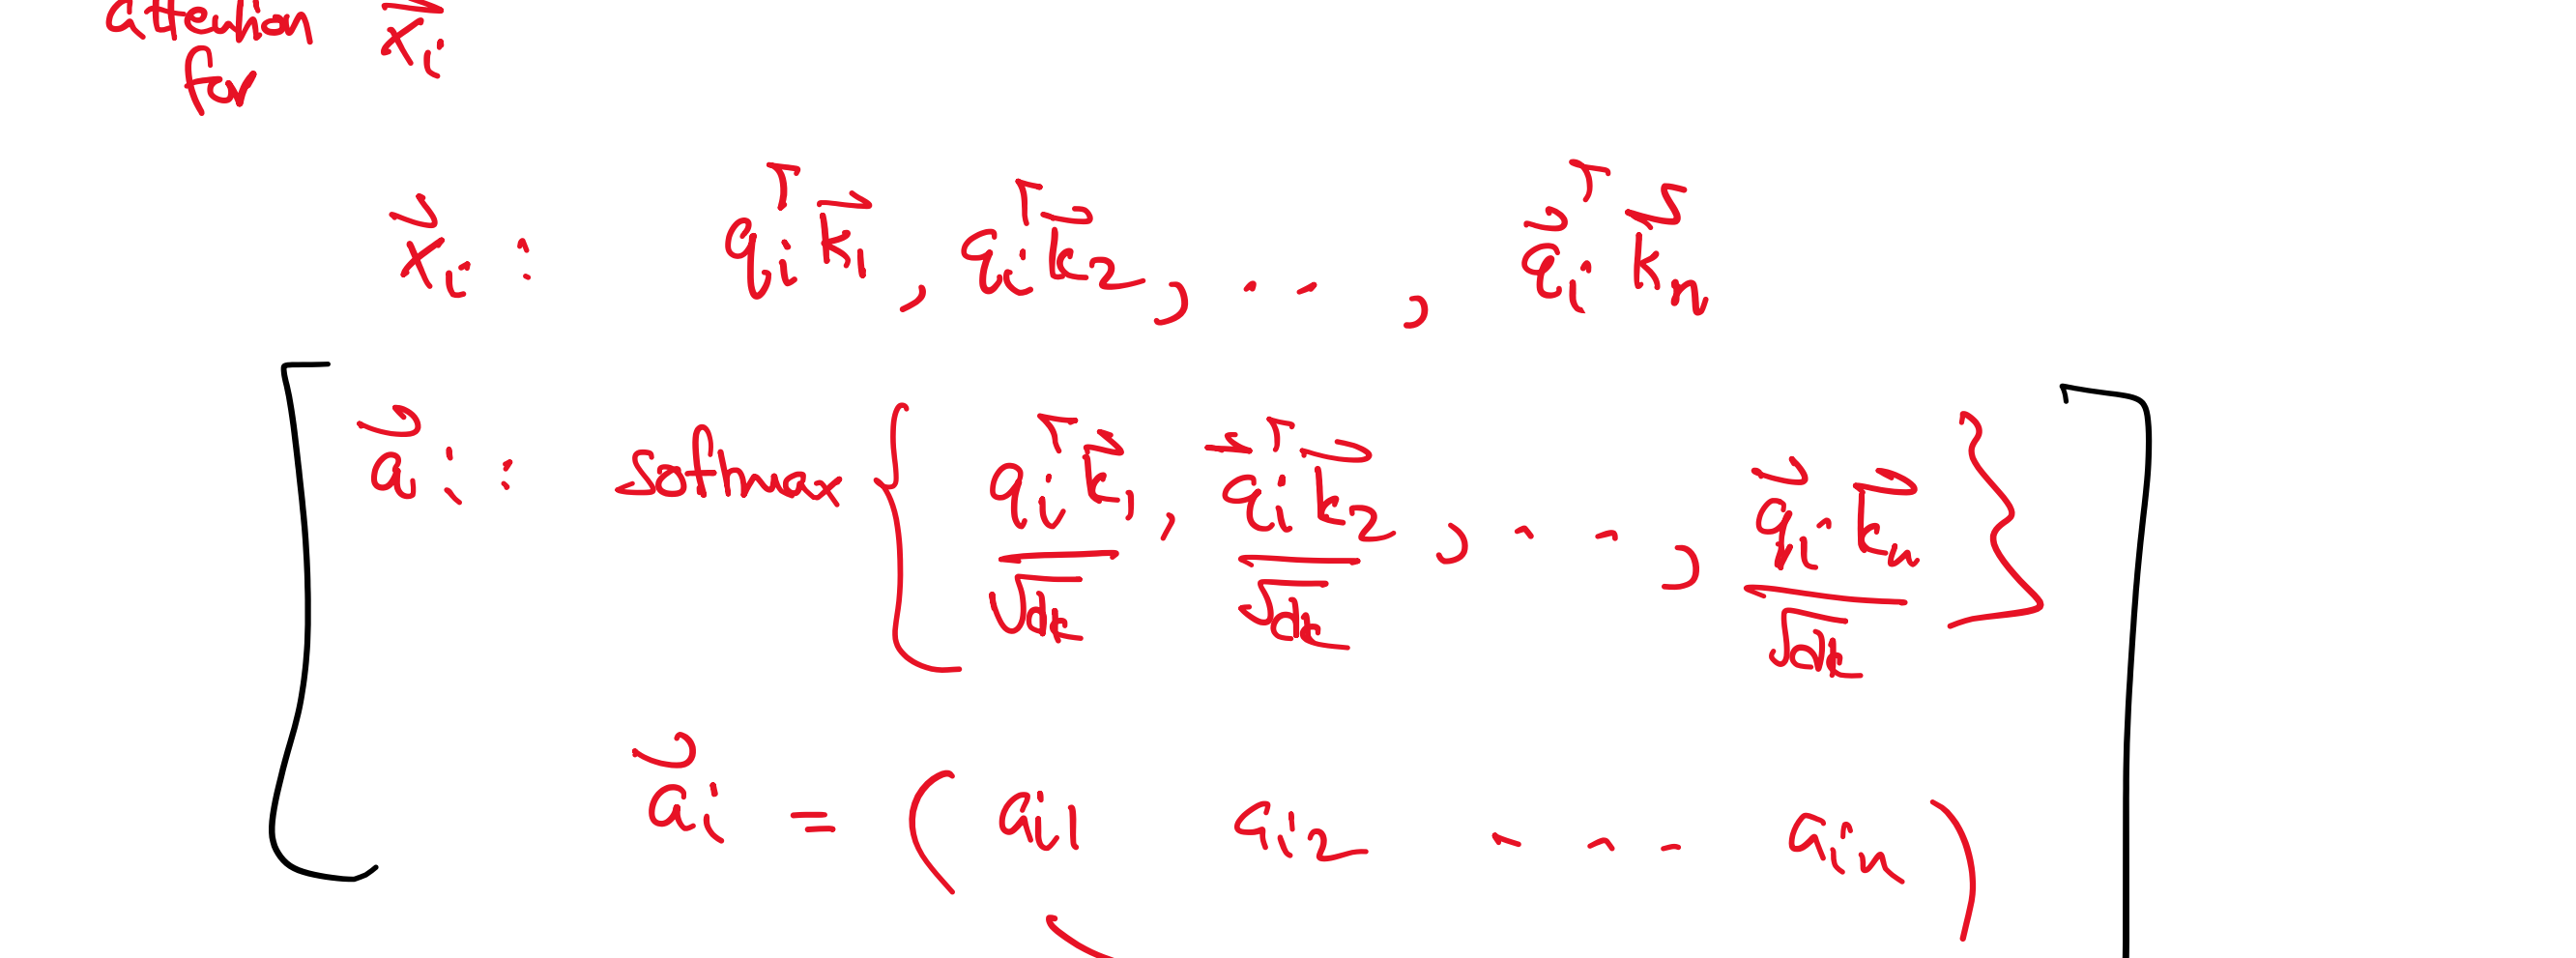 attention x⃗ᵢ
for
x⃗ᵢ : qᵢᵀ k⃗₁ , qᵢᵀ k⃗₂ , .. , q⃗ᵢᵀ k⃗ₙ
a⃗ᵢ : softmax { qᵢᵀ k⃗₁ / √dₖ , q⃗ᵢᵀ k⃗₂ / √dₖ , .. , q⃗ᵢ k⃗ₙ / √dₖ }
a⃗ᵢ = ( aᵢ₁ aᵢ₂ ... aᵢₙ )